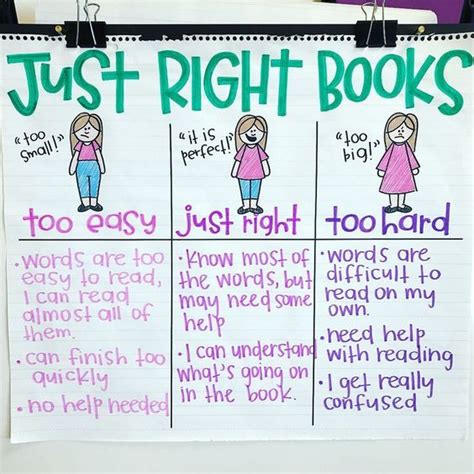 JUST RIGHT BOOKS
"too
small!"
"it is
perfect!"
"too
big!"
too easy
just right
too hard
• words are too
easy to read,
I can read
almost all of
them.
• can finish too
quickly
• no help needed
• Know most of
the words, but
may need some
help
• I can understand
what's going on
in the book.
• words are
difficult to
read on my
own.
• need help
with reading
• I get really
confused